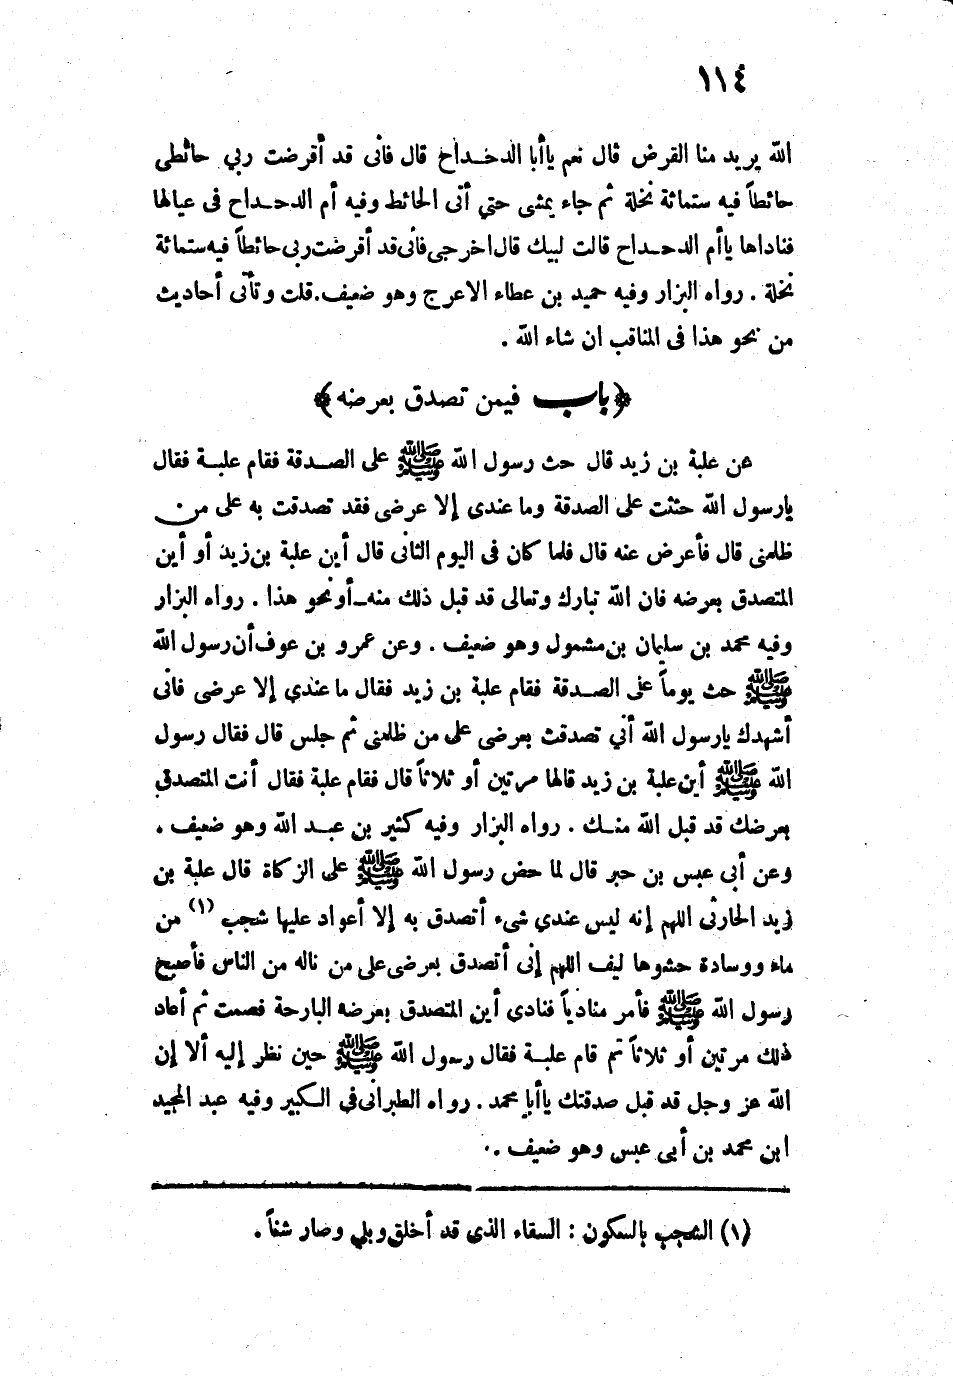 ١١٤
الله يريد منا القرض قال نعم ياأبا الدحداح قال فانى قد أقرضت ربي حائطى
حائطاً فيه ستمائة نخلة ثم جاء يمشى حتي أتى الحائط وفيه أم الدحداح فى عيالها
فناداها ياأم الدحداح قالت لبيك قال اخرجى فانى قد أقرضت ربى حائطاً فيه ستمائة
نخلة . رواه البزار وفيه حميد بن عطاء الاعرج وهو ضعيف . قلت وتأتى أحاديث
من نحو هذا فى المناقب ان شاء الله .
﴿باب فيمن تصدق بعرضه﴾
عن علبة بن زيد قال حث رسول الله ﷺ على الصدقة فقام علبة فقال
يارسول الله حثثت على الصدقة وما عندى إلا عرضى فقد تصدقت به على من
ظلمنى قال فأعرض عنه قال فلما كان فى اليوم الثانى قال أين علبة بن زيد أو أين
المتصدق بعرضه فان الله تبارك وتعالى قد قبل ذلك منه ـ أو نحو هذا . رواه البزار
وفيه محمد بن سليمان بن مشمول وهو ضعيف . وعن عمرو بن عوف أن رسول الله
ﷺ حث يوماً على الصدقة فقام علبة بن زيد فقال ما عندي إلا عرضى فانى
أشهدك يارسول الله أني تصدقت بعرضى على من ظلمنى ثم جلس قال فقال رسول
الله ﷺ أين علبة بن زيد قالها مرتين أو ثلاثاً قال فقام علبة فقال أنت المتصدق
بعرضك قد قبل الله منك . رواه البزار وفيه كثير بن عبد الله وهو ضعيف .
وعن أبى عبس بن جبر قال لما حض رسول الله ﷺ على الزكاة قال علبة بن
زيد الحارثى اللهم إنه ليس عندي شىء أتصدق به إلا أعواد عليها شجب (١) من
ماء ووسادة حشوها ليف اللهم إنى أتصدق بعرضى على من ناله من الناس فأصبح
رسول الله ﷺ فأمر منادياً فنادى أين المتصدق بعرضه البارحة فصمت ثم أعاد
ذلك مرتين أو ثلاثاً ثم قام علبة فقال رسول الله ﷺ حين نظر إليه ألا إن
الله عز وجل قد قبل صدقتك ياأبا محمد . رواه الطبرانى فى الكبير وفيه عبد المجيد
ابن محمد بن أبى عبس وهو ضعيف .
(١) الشجب بالسكون : السقاء الذى قد أخلق وبلي وصار شناً .